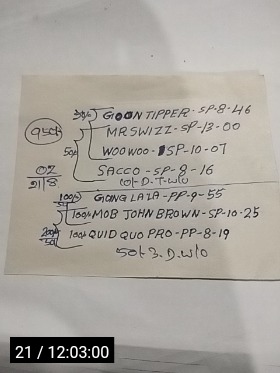 GOON TIPPER - SP-8-46
950/-
MR SWIZZ - SP-13-00
WOO WOO - SP-10-07
50/-
SACCO - SP-8-16
02
21/8
10/- D.T.W/O
100/- GONG LALA - PP-9-55
50
100/- MOB JOHN BROWN - SP-10-25
200/- 100/- QUID QUO PRO - PP-8-19
50
50/- 3.D.W/O
21 / 12:03:00